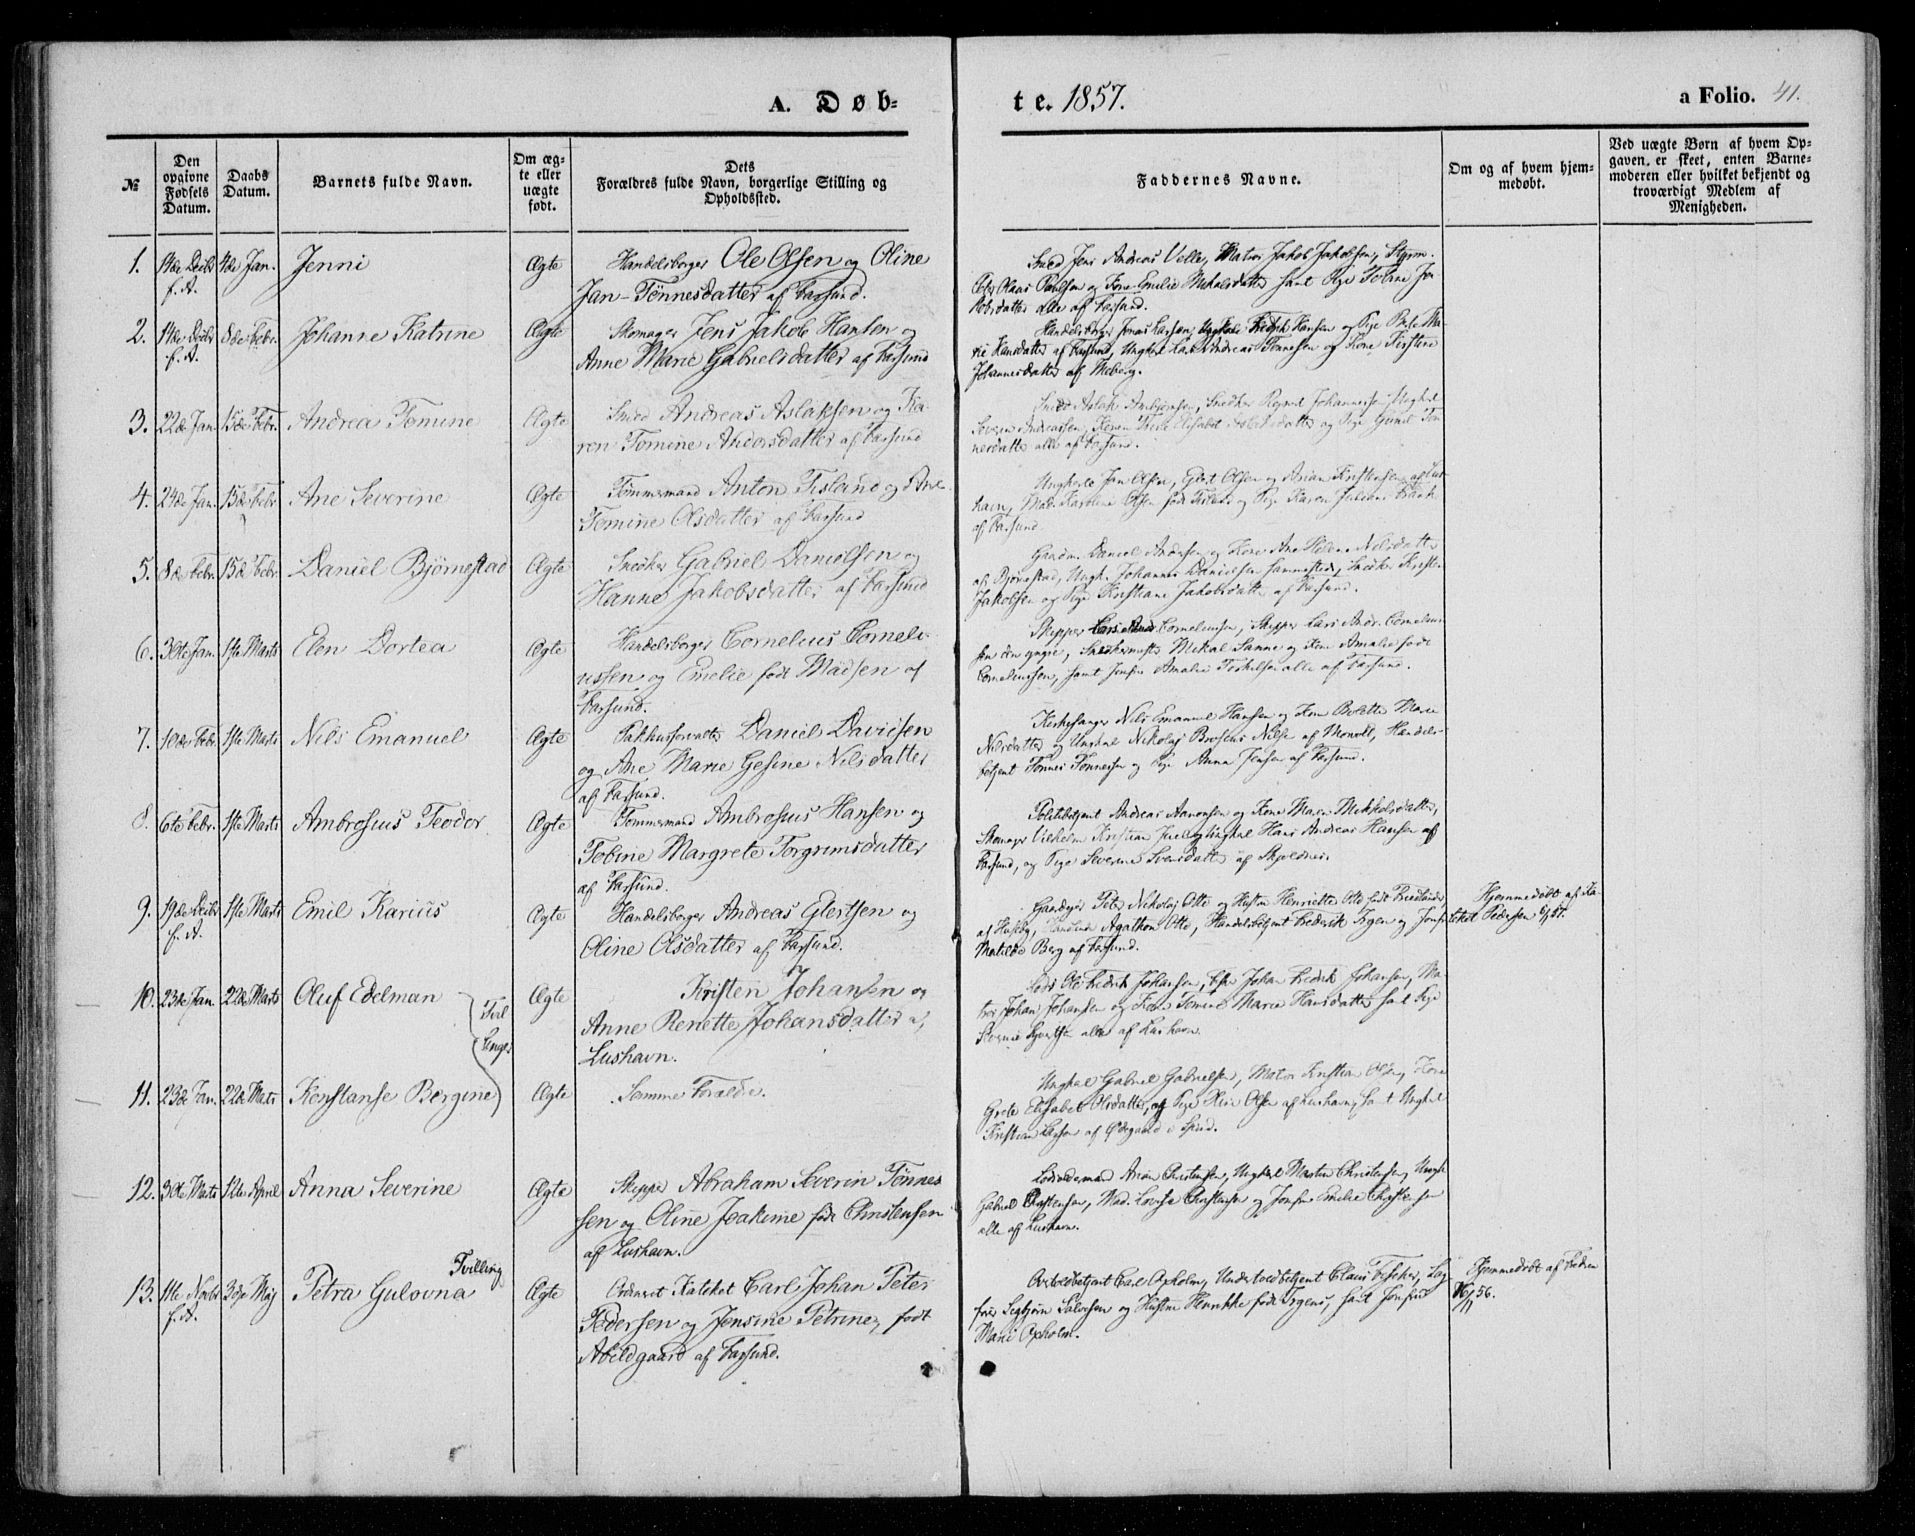 A. Døb-
te. 1857.
a Folio. 41.
№
Den opgivne Fødsels Datum.
Daabs Datum.
Barnets fulde Navn.
Om ægte eller uægte født.
Dets Forældres fulde Navn, borgerlige Stilling og Opholdssted.
Faddernes Navne.
Om og af hvem hjemmedøbt.
Ved uægte Børn af hvem Opgaven er skeet, enten Barnemoderen eller hvilket bekjendt og troværdigt Medlem af Menigheden.
1. 4de Jan. Jenni Ægte Handelsborger Ole Olsen og Oline
f. A. Jan-Tønnesdatter af Farsund.
Smed Jens Andreas Velle, Matros Jakob Jakobsen, Styrm.
Olaus Paulsen og Kone Emilie Mikalsdatter samt Pige Tobine Ja-
kobsdatter alle af Farsund.
2. 8de Febr. Johanne Katrine Ægte Skomager Jens Jakob Hansen og
f. A. Anne Marie Gabrielsdatter af Farsund
Handelsborger Jonas Larsen, Ungkarl Fredrik Hansen og Pige Ma-
rie Hansdatter af Farsund, Ungkarl Andreas Tønnesen og Kone Kirstine
Johannesdatter af Meberg.
3. 22de Jan. 15de Febr. Andrea Tomine Ægte Smed Andreas Aslaksen og Ka-
ren Tomine Andersdatter af Farsund
Smed Aslak Snedker Johannesen Ungkarl
Søren Andreassen, Elisabet og Pige Gunil Tøn-
nesdatter alle af Farsund.
4. 24de Jan. 15de Febr. Ane Severine Ægte Tømmermand Anton Tisland og Ane
Tomine Olsdatter af Farsund
Ungkarle Jon Olsen, Glert Olsen og Kristensen af Lus-
havn, Mad. Karoline Olsen født og Pige Karen Juliane
af Farsund
5. 8de Febr. 15de Febr. Daniel Bjørnestad Ægte Snedker Gabriel Danielsen og
Hanne Jakobsdatter af Farsund
Gaardm. Daniel Andersen og Kone Ane Helene Nilsdatter
af Bjørnestad, Ungk. Johannes Danielsen sammesteds, Snedker Kristen
Jakobsen og Pige Kristiane Jakobsdatter af Farsund.
6. 30te Jan. 1ste Marts Elen Dortea Ægte Handelsborger Cornelius Corneli-
ussen og Emelie født Madsen af
Farsund.
Skipper Corneliussen, Skipper Lars Andr. Cornelius-
sen den yngre, Snedkermester Mikal Sanne og Kone Amalie født
Corneliussen, samt Jomfru Amalie Terkelsen alle af Farsund.
7. 10de Febr. 1ste Marts Nils Emanuel Ægte Pakhusforvalter Daniel Davidsen
og Ane Marie Gesine Nilsdatter
af Farsund.
Kirkesanger Nils Emanuel Hansen og Kone Bolette Marie
Nilsdatter og Ungkarl Nikolaj Nilsen af Handels-
betjent Tønnes Tønnessen og Pige Anna Jensen af Farsund.
8. 6te Febr. 1ste Marts Ambrosius Teodor Ægte Tømmermand Ambrosius Hansen og
Tobine Margrete Torgrimsdatter
af Farsund.
Politibetjent Andreas Aanonsen og Kone Maren Mikkelsdatter,
Skomager Vilhelm Kristian Ungkarl Hans Andreas Hansen af
Farsund, og Pige Severine Svensdatter af Skjoldnes.
9. 19de Decbr 1ste Marts Emil Karius Ægte Handelsborger Andreas Glertsen og
f. A. Oline Olsdatter af Farsund.
Gaardejer Peter Nikolaj Otto og Hustru Henriette Otto født Friedlænder,
af Huseby, Agathon Otto, Handelsbetjent Frederik Irgen og Jomfr
Matilde Berg af Farsund.
Hjemmedøbt af Ka-
teket Pedersen 57.
10. 23de Jan. 22de Marts Oluf Edelman Ægte Kristen Johansen og
Anne Renette Johansdatter af
Lushavn.
Lods Ole Fredrik Johansen, Johan Fredrik Johansen, Ma-
tros Johan Johansen og Kone Tomine Marie Hansdatter samt Pige
alle af Lushavn.
Tvil
linger
11. 23de Jan. 22de Marts Konstanse Bergine Ægte Samme Forældre.
Ungkarl Gabriel Gabrielsen, Matros Kristian Olsen, Kone
Grete Elisabet Olsdatter, og Pige Oline Olsen af Lushavn, samt Ungkarl
Kristian Larsen af Ødegaard i Spind.
12. 30te Marts 12te April Anna Severine Ægte Skipper Abraham Severin Tønnes
sen og Oline Joakime født Christensen
af Lushavn.
Lodsoldermand Christensen, Ungkarl Martin Christensen, Ungk.
Gabriel Christensen, Mad. Lovise Christensen og Jomfru Emilie Christensen
alle af Lushavn.
Tvilling
13. 11te Novbr 3die Maj Petra Gulovna Ægte Ordineret Kateket Carl Johan Peter
f. A. Pedersen og Jensine Petrine, født
Abildgaard af Farsund.
Overtoldbetjent Carl Oxholm, Undertoldbetjent Claus Fescher, Sag-
fører Segbjørn Salvesen og Hustru Henrikke født Irgens, samt Jomfru
Marie Oxholm.
Hjemmedøbt af Faderen
16/11 56.